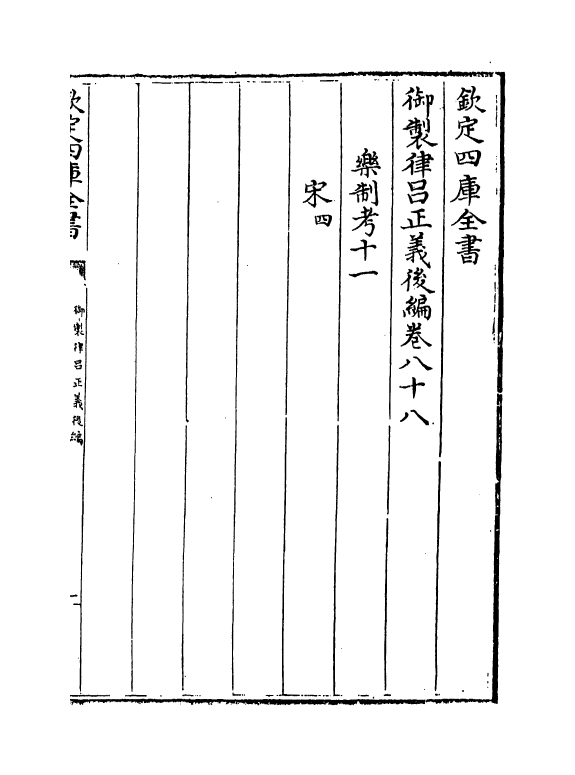 欽定四庫全書
御製律呂正義後編卷八十八
樂制考十一
宋四
欽定四庫全書
御製律呂正義後編
一